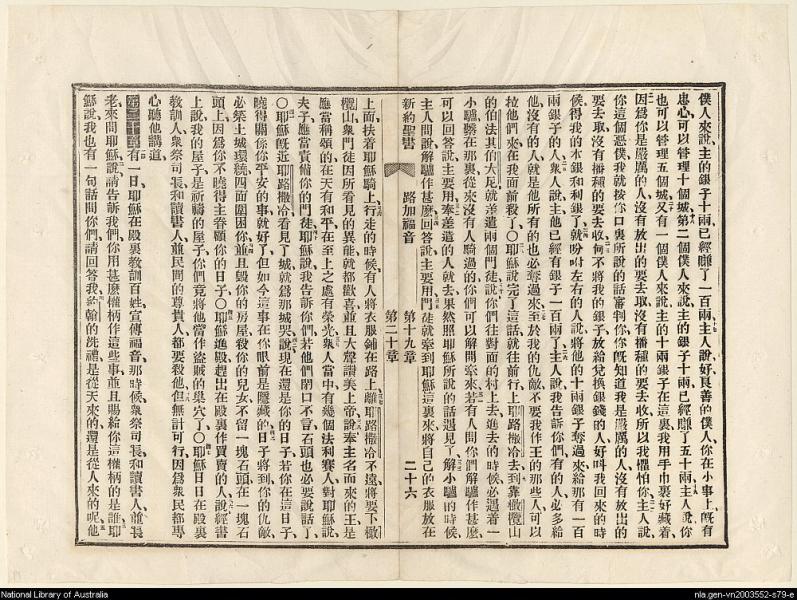 僕人來說主的銀子十兩已經賺了一百兩主人說好良善的僕人你在小事上既有
忠心可以管理十個城第二個僕人來說主的銀子十兩已經賺了五十兩主人說你
也可以管理五個城又有一個僕人來說主的十兩銀子在這裏我用手巾裹好藏着
因爲你是嚴厲的人沒有放出的要去取沒有播種的要去收所以我懼怕你主人說
你這個惡僕我就按你口裏所說的話審判你你既知道我是嚴厲的人沒有放出的
要去取沒有播種的要去收何不將我的銀子放給兌換銀錢的人好叫我回來的時
候得我的本銀和利銀了就吩咐左右的人說將他的十兩銀子奪過來給那有一百
兩銀子的人衆人說主他已經有銀子一百兩了主人說我告訴你們有的人必多給
他沒有的人就是他所有的也必奪過來至於我的仇敵不要我作王的那些人可以
拉他們來在我面前殺了〇耶穌說完了這話就往前行上耶路撒冷去到靠橄欖山
的伯法其伯大尼就差遣兩個門徒說你們往對面的村上去進去的時候必遇着一
小驢繫在那裏從來沒有人騎過的你們可以解開牽來若有人問你們解驢作甚麽
可以回答說主要用奉差遣的人就去果然照耶穌所說的話遇見了解小驢的時候
主人問說解驢作甚麽回答說主要用門徒就牽到耶穌這裏來將自己的衣服放在
新約聖書 路加福音 第十九章 第二十章 二十六
上面扶着耶穌騎上行走的時候有人將衣服鋪在路上離耶路撒冷不遠將要下橄
欖山衆門徒因所看見的異能就都歡喜並且大聲讚美上帝說奉主名而來的王是
應當稱頌的在天有和平在至上之處有榮光衆人當中有幾個法利賽人對耶穌說
夫子應當責備你的門徒耶穌說我告訴你們若他們閉口不言石頭也必要說話了
〇耶穌旣近耶路撒冷看見了城就爲那城哭說現在還是你的日子若你在這日子
曉得關係你平安的事就好了但如今這事在你眼前是隱藏的日子將到你的仇敵
必築土城環繞四面圍困你並且毀你的房屋殺你的兒女不留一塊石頭在一塊石
頭上因爲你不曉得主眷顧你的日子〇耶穌進殿趕出在殿裏作買賣的人說經書
上說我的屋子是祈禱的屋子你們竟將他當作盜賊的巢穴了〇耶穌日日在殿裏
教訓人衆祭司長和讀書人並民間的尊貴人都要殺他但無計可行因爲衆民都專
心聽他講道
第二十章有一日耶穌在殿裏教訓百姓宣傳福音那時候衆祭司長和讀書人並長
老來問耶穌說請告訴我們你用甚麽權柄作這些事並且賜給你這權柄的是誰耶
穌說我也有一句話問你們請回答我約翰的洗禮是從天來的還是從人來的呢他
National Library of Australia
nla.gen-vn2003552-s79-e